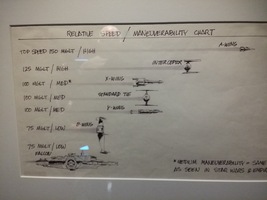 RELATIVE SPEED / MANEUVERABILITY CHART
A-WING
TOP SPEED 150 MGLT / HIGH
INTERCEPTOR
125 MGLT / HIGH
X-WING
100 MGLT / MED*
STANDARD TIE
100 MGLT / MED
Y-WING
100 MGLT / MED
B-WING
75 MGLT / LOW
75 MGLT / LOW
FALCON
*MEDIUM MANEUVERABILITY = SAME
AS SEEN IN STAR WARS